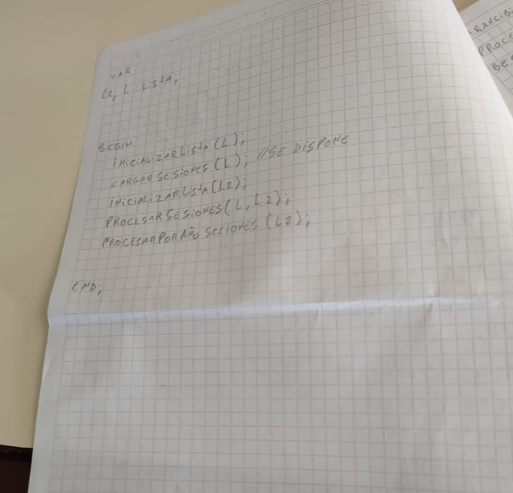 VAR
L2, L: LISTA;
BEGIN
INICIALIZARLISTA(L);
CARGARSESIONES(L); //SE DISPONE
INICIALIZARLISTA(L2);
PROCESARSESIONES(L, L2);
PROCESARPORAÑOSESIONES(L2);
END;
PROCES
BE